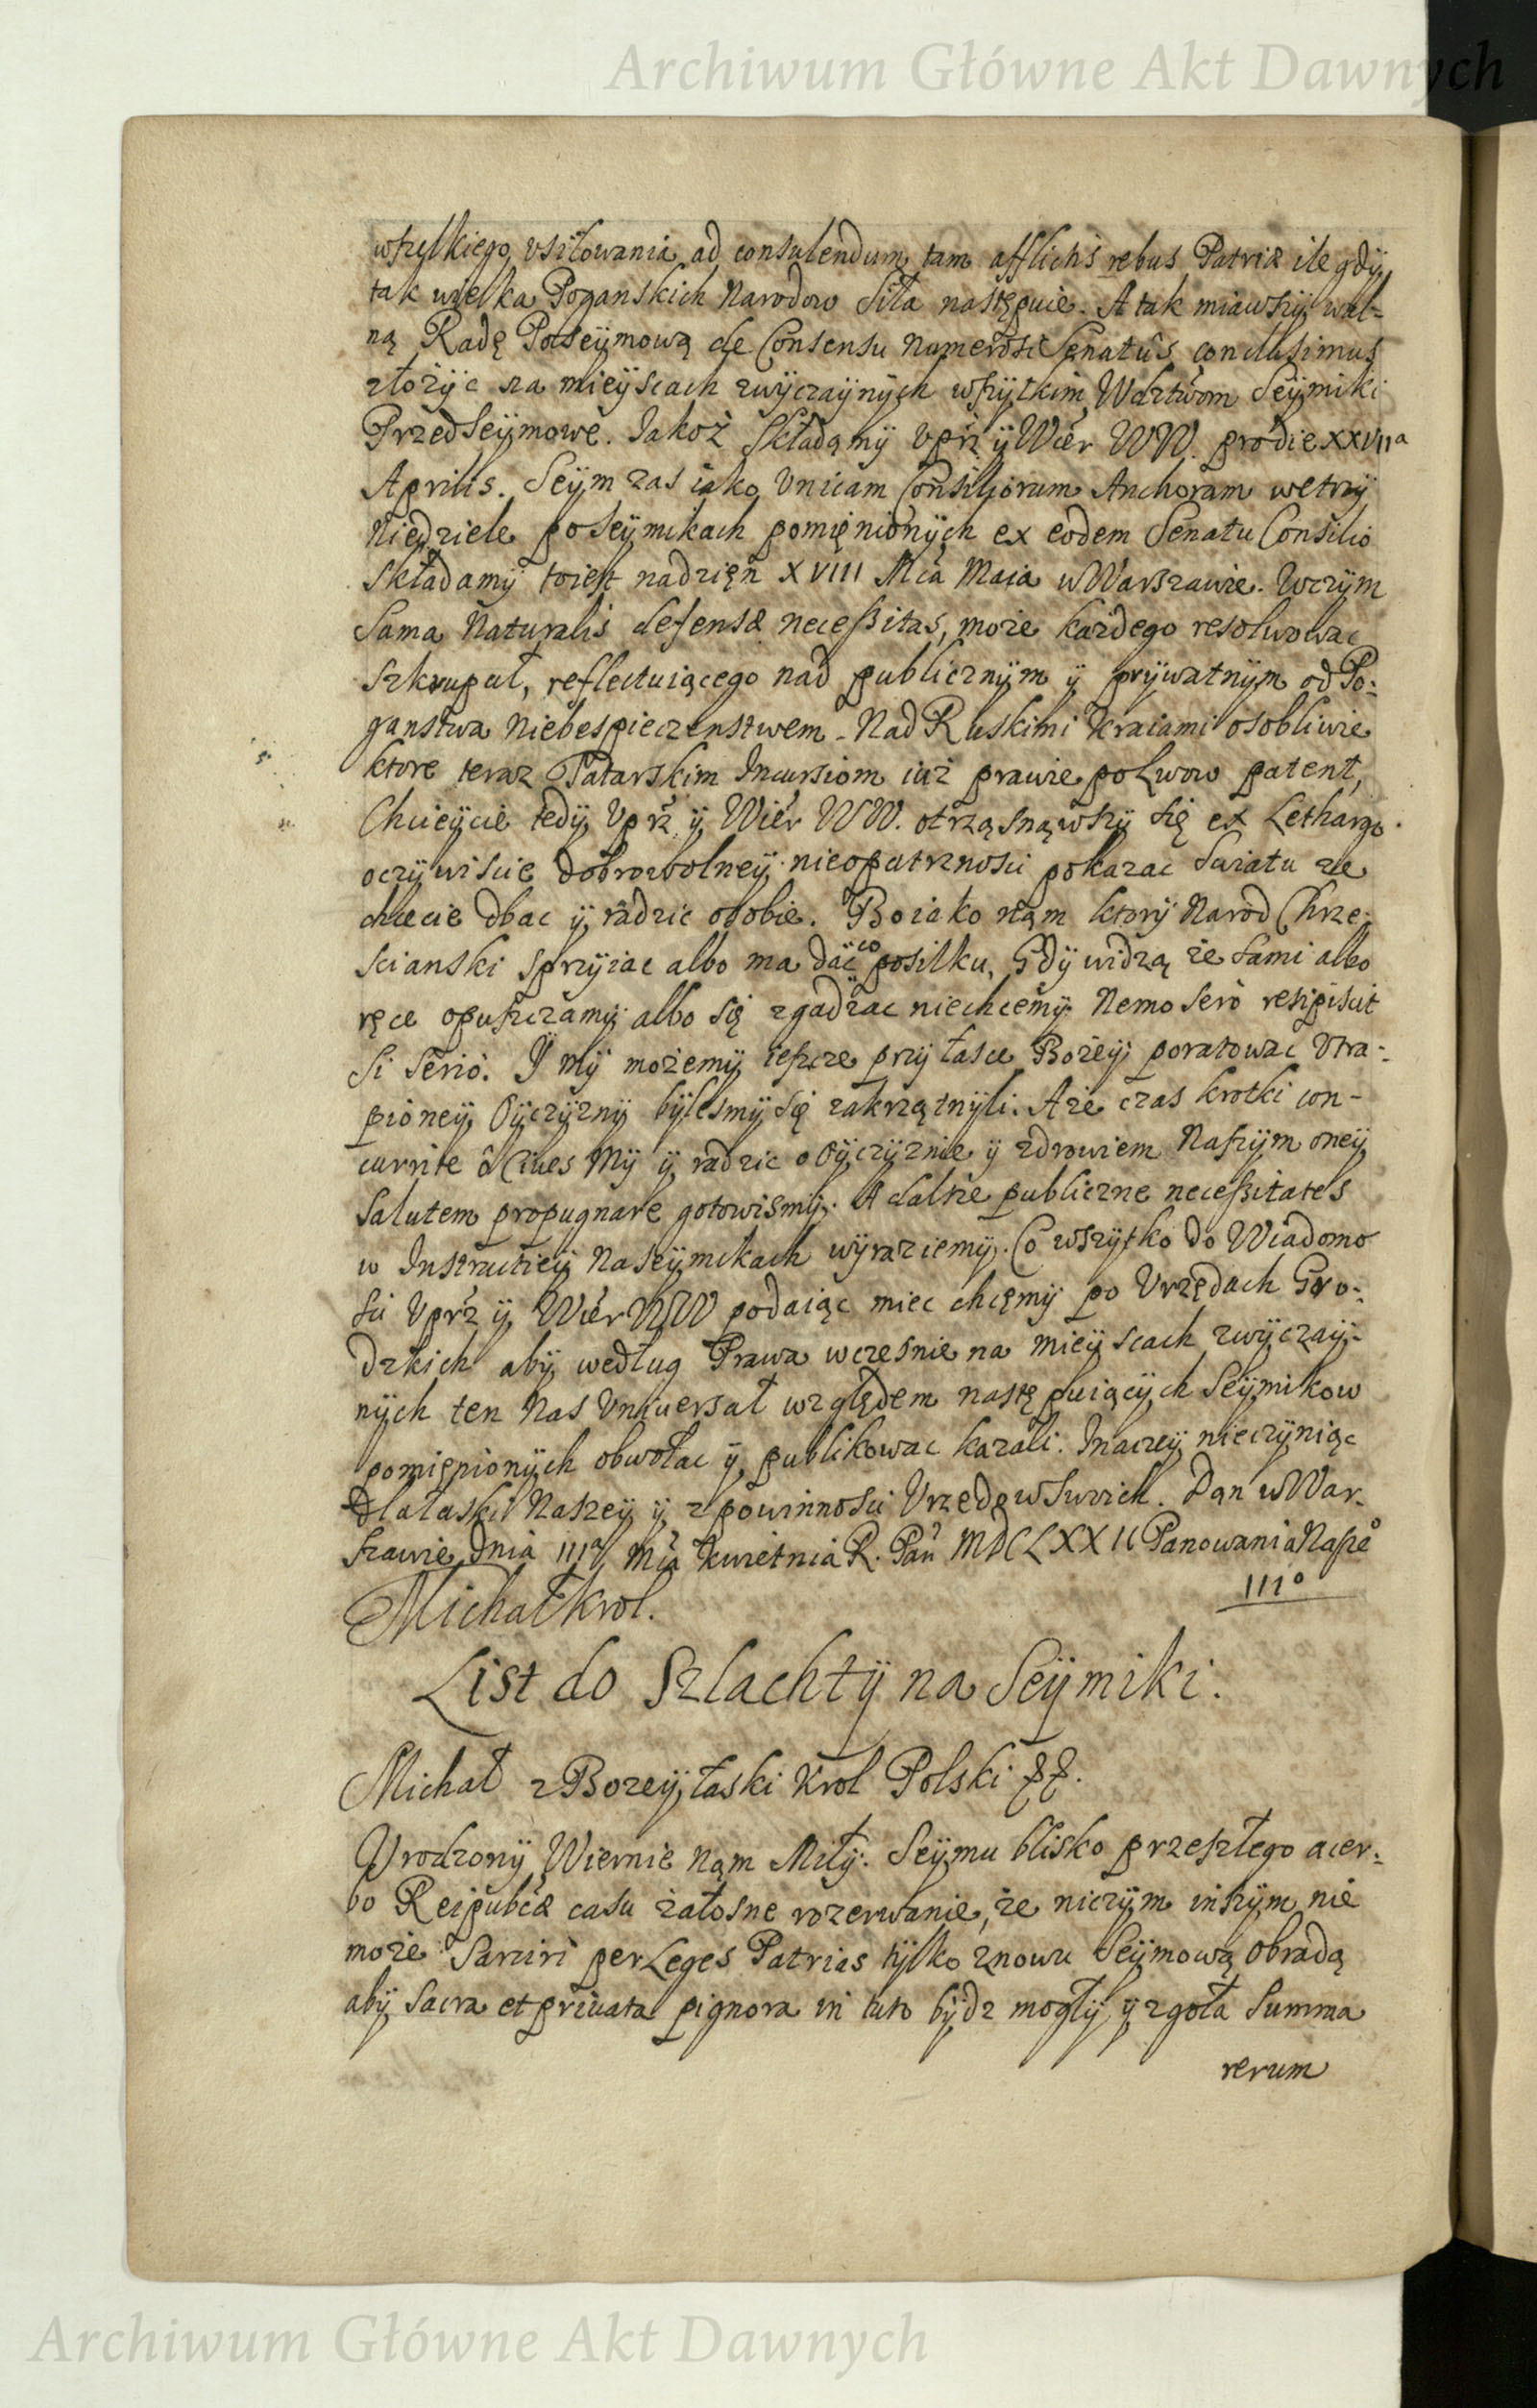 Archiwum Główne Akt Dawnych
wszelkiego vsiłowania ad consulendum tam afflictis rebus Patriæ ile gdÿ
tak wielka Poganskich Narodow siła następuie. A tak miawszÿ wal-
ną Radę PoSeÿmową de Consensu Numerosi Senatûs conclusimus
złożÿc na mieÿscach zwÿczaÿnÿch wszÿtkim Wdztwom Seÿmiki
PrzedSeÿmowe. Jakoż Składamÿ Vprz ÿ Wier WW. pro die XXVIIa
Aprilis. Seÿm zas iako Vnicam Consiliorum Anchoram wetrzÿ
Niedziele poSeÿmikach pomięnionÿch ex eodem Senatu Consilio
Składamÿ toiest nadzięn XVIII Mca Maia wWarszawie. Wczÿm
Sama Naturalis defensæ necessitas, może każdego resolwowac
szkrupuł, reflectuiącego nad publicznÿm ÿ prÿwatnÿm od Po-
ganstwa Niebespieczenstwem. Nad Ruskimi Kraiami osobliwie
ktore teraz Tatarskim Incursiom iuż prawie po Lwow patent,
Chcieÿcie tedÿ Vprz ÿ Wier WW. otrząsnąwszÿ się ex Lethargo
oczÿwiscie dobrowolneÿ nieopatrznosci pokazac Swiatu że
chcecie dbac ÿ radzic osobie. Bo iako nąm ktorÿ Narod Chrze-
scianski sprzÿiac albo ma dac co posilku, Gdÿ widzą że sami albo
ręce opuszczamÿ albo się zgadzac niechcemÿ. Nemo sero resipiscit
Si Serió. Ÿ mÿ możemÿ ieszcze przÿ łasce Bożeÿ poratowac Vtra-
pioneÿ Oÿczÿznÿ bÿlesmÿ się zakrzątnÿli. A że czas krotki con-
currite ô Cives Mÿ ÿ radzic o Oÿczÿznie ÿ zdrowiem Naszÿm oneÿ
Salutem propugnare gotowismÿ. A dalsze publiczne necessitates
w Instructieÿ Na Seÿmikach wÿraziemÿ. Co wszÿtko do Wiadomo
sci Vprz ÿ Wier WW podaiąc miec chcęmÿ po Vrzędach Gro-
dzkich abÿ według Prawa wczesnie na mieÿscach zwÿczaÿ-
nÿch ten Nas Vniversał względem następuiącÿch Seÿmikow
pomięnionÿch obwołac ÿ publikowac kazali. Inaczeÿ nieczÿniąc
dla łaski Naszeÿ ÿ z powinnosci Vrzędow Swoich. Dąn w War-
szawie dnia IIIa Mca Kwietnia R. Pan MDCLXXII Panowania Nasze°
III°
Michał Krol.
List do Szlachtÿ na Seÿmiki.
Michał z Bozeÿ łaski Krol Polski &&.
Vrodzonÿ Wiernie Nąm Miłÿ. Seÿmu blisko przeszłego acer-
bo Reipubcæ casu żałosne rozerwanie, że niczÿm inszÿm nie
może Sarciri per Leges Patrias tÿlko znowu Seÿmową obradą
abÿ sacra et privata pignora in tuto bÿdz mogłÿ ÿ zgoła Summa
rerum
Archiwum Główne Akt Dawnych